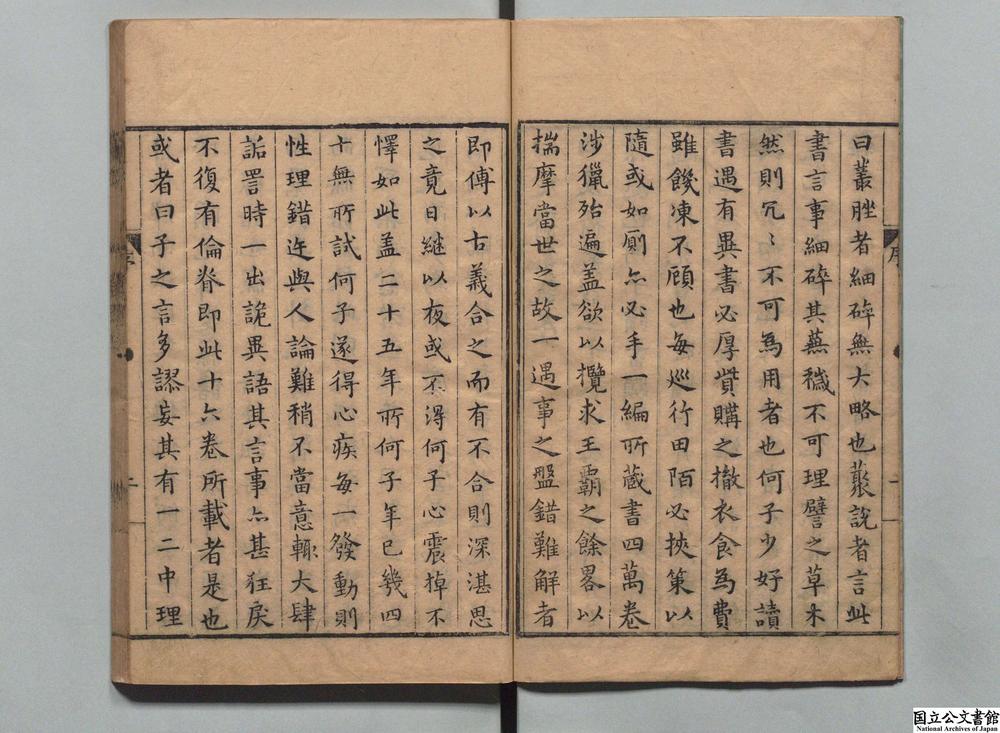 曰叢脞者細碎無大略也藂說者言此
書言事細碎其蕪穢不可理譬之草木
然則冗〻不可為用者也何子少好讀
書遇有異書必厚貲購之撤衣食為費
雖饑凍不顧也每巡行田陌必挾策以
隨或如厠亦必手一編所藏書四萬卷
涉獵殆遍盖欲以攬求王霸之餘畧以
揣摩當世之故一遇事之盤錯難解者
即傅以古義合之而有不合則深湛思
之竟日繼以夜或不得何子心震掉不
懌如此盖二十五年所何子年已幾四
十無所試何子遂得心疾每一發動則
性理錯迕與人論難稍不當意輙大肆
詬詈時一出詭異語其言事亦甚狂戾
不復有倫脊即此十六卷所載者是也
或者曰子之言多謬妄其有一二中理
序
二
国立公文書館
National Archives of Japan